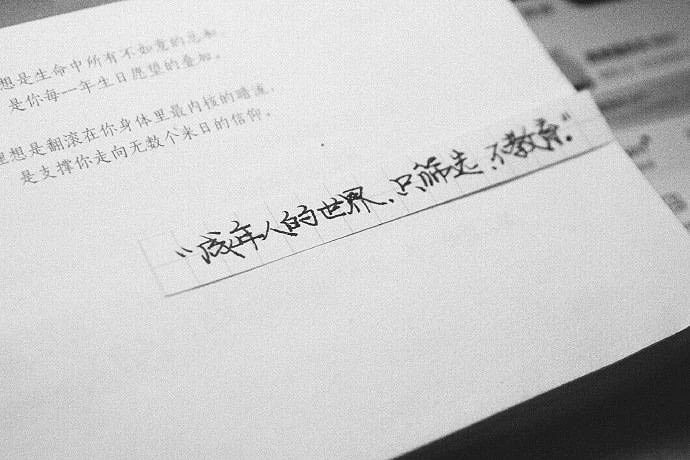 想是生命中所有不如意的总和，
是你每一年生日愿望的叠加。
理想是翻滚在你身体里最内核的暗流，
是支撑你走向无数个来日的信仰。
“成年人的世界，只筛选，不教育。”